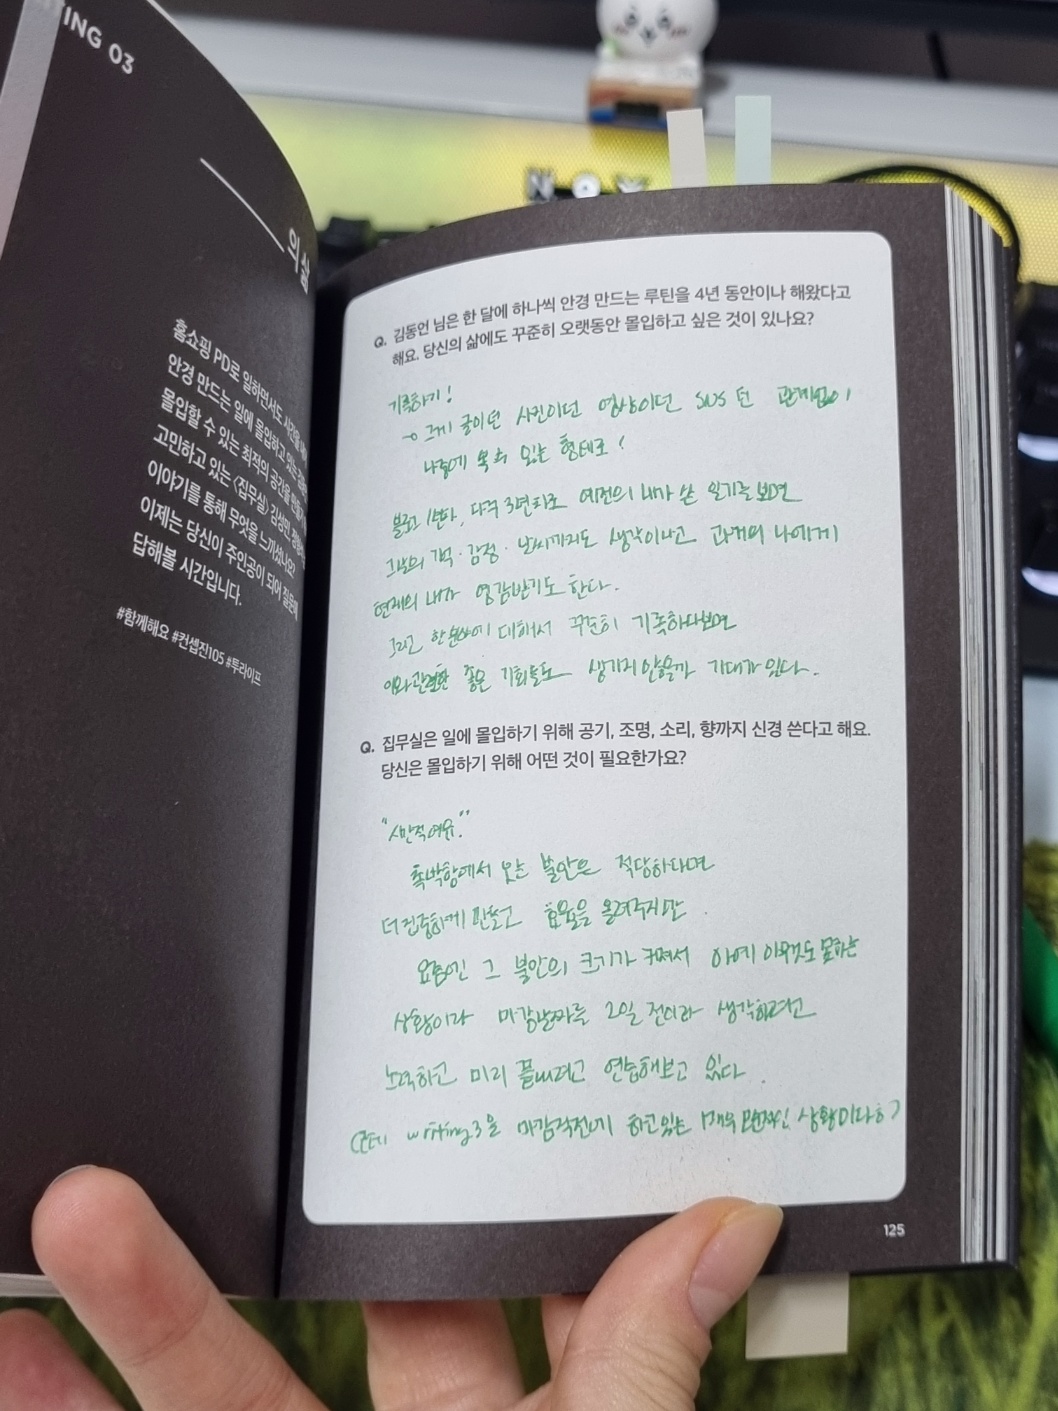 TING 03
의 삶
홈쇼핑 PD로 일하면서도 시간을
안경 만드는 일에 몰입하고 있는
몰입할 수 있는 최적의 공간을 만들기
고민하고 있는 <집무실> 김성민,
이야기를 통해 무엇을 느끼셨나요?
이제는 당신이 주인공이 되어 질문에
답해볼 시간입니다.
#함께해요 #컨셉진105 #투라이프
Q. 김동언 님은 한 달에 하나씩 안경 만드는 루틴을 4년 동안이나 해왔다고
해요. 당신의 삶에도 꾸준히 오랫동안 몰입하고 싶은 것이 있나요?
기록하기!
→ 그게 글이던 사진이던 영상이던 SNS던 관계없이
나중에 볼 수 있는 형태로!
블로그 1년차, 다꾸 3년차로 예전의 내가 쓴 일기를 보면
그날의 기억·감정·날씨까지도 생각이나고 과거의 나에게
현재의 내가 영감받기도 한다.
그리고 한 분야에 대해서 꾸준히 기록하다보면
이와 관련한 좋은 기회들도 생기지 않을까 기대가 있다.
Q. 집무실은 일에 몰입하기 위해 공기, 조명, 소리, 향까지 신경 쓴다고 해요.
당신은 몰입하기 위해 어떤 것이 필요한가요?
"시간적 여유."
촉박함에서 오는 불안은 적당하다면
더 집중하게 만들고 효율을 올려주지만
요즘엔 그 불안의 크기가 커져서 아예 아무것도 못하는
상황이라 마감날짜를 2일 전이라 생각하려고
노력하고 미리 끝내려고 연습해보고 있다.
(근데 writing 3을 마감직전에 하고있는 매우 모순적인 상황이라 ㅎ)
125